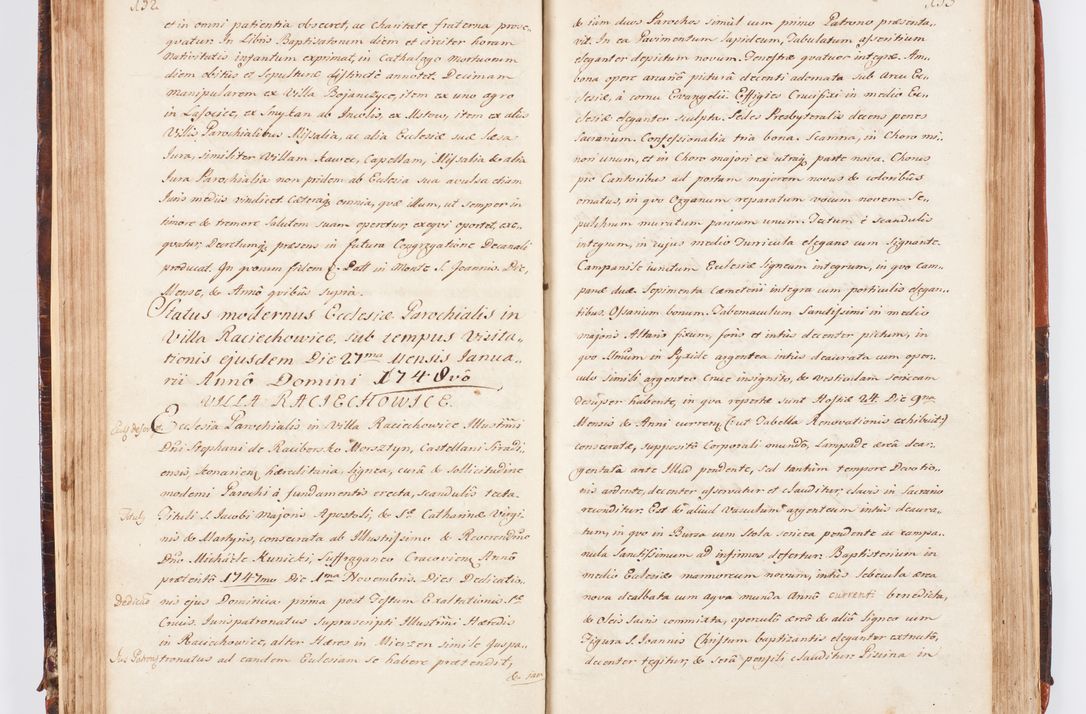 152
et in omni patientia obsecret, ac charitate fraterna prose,
quatur. In Libris Baptisatorum diem et circiter horam
Nativitatis infantum exprimat, in Cathalogo mortuorum
diem obitus et sepulturæ distinctè annotet. Decimam
manipularem ex Villa Bojanczyce, item ex uno agro
in Lasocice, ex Smykan ab Incolis, ex Mstow, item ex aliis
Villis Parochialibus Missalia, ac alia Ecclesiæ suæ læsa
Jura, similiter Villam Kawec, Capellam, Missalia & alia
Jura Parochialia non pridem ab Ecclesia sua avulsa etiam
Juris mediis vindicet Cæteraq, omnia, quæ illum, ut semper in
timore & tremore Salutem suam operetur, exequi oportet, exe,
quatur, Decretumq, præsens in futura Congregatione Decanali
producat. In quorum fidem Datt in Monte S. Joannis. Die,
Mense, & Annô quibus supra.
Status modernus Ecclesiæ Parochialis in
Villa Raciechowice, sub tempus Visita,
tionis ejusdem Die 27ma Mensis Janua,
rii Annô Domini 1748vô
VILLA RACIECHOWICE.
Ecclesia Parochialis in Villa Raciechowice Illustrissimi
Dni Stephani de Raubersko Morsztyn, Castellani Siradi,
ensis, hæreditaria, lignea, curâ & sollicitudine
moderni Parochi à fundamentis erecta, scandulis tecta.
Tituly
Tituli S. Jacobi Majoris Apostoli, & Stæ Catharinæ Virgi,
nis & Martyris, consecrata ab Illustrissimo & Reverendino
Dno Michaële Kunicki, Suffraganeo Cracovien, Annô
præterito 1747mo Die 1ma Novembris. Dies Dedicatio,
Dedicão
nis ejus Dominica prima post Festum Exaltationis Stæ
Crucis. Juris patronatus Suprascripti Illustrissimi Hæredis
in Raciechowice, alter Hæres in Mierzen simile Juspa,
Jus Patrony
tronatus ad eandem Ecclesiam se habere prætendit,
& iam
153
& iam duos Parochos simul cum primo Patrono præsenta,
vit. In ea Pavimentum lapideum, Tabulatum asseritium
eleganter depictum novum. Fenestræ quatuor integræ. Am,
bona opere arcuario picturâ decenti adornata sub Arcu Ec,
clesiæ, à cornu Evangelii. Effigies Crucifixi in medio Ec,
clesiæ eleganter sculpta. Sedes Presbyteralis decens penes
Sacrarium. Confessionalia tria bona. Scamna, in Choro mi,
nori unum, et in Choro majori ex utraq, parte nova. Chorus
pro Cantoribus ad portam majorem novus & coloribus
ornatus, in quo Organum reparatum vocum novem. Se,
pulchrum muratum parvum unum. Tectum è scandulis
integrum, in cujus medio Turricula elegans cum signante.
Campanile iunctum Ecclesiæ ligneum integrum, in quo cam,
panæ duæ. Sepimenta Cæmeterii integra cum porticulis elegan,
tibus. Ossarium bonum. Tabernaculum Sanctissimi in medio
majoris Altaris fixum, foris et intùs decenter pictum, in
quo Ssmum in Pyxide argentea intùs deaurata cum oper,
culo simili argenteo Cruce insignito, & vesticulam sericeam
desuper habente, in qua repertæ sunt Hostiæ 24. Die 9bris
Mensis & Anni curren, (ut Tabella Renovationis exhibuit)
consecratæ, supposito Corporali mundo, Lampade æreâ dear,
gentata ante Illud pendente, sed tantùm tempore Devotio,
nis ardente, decenter asservatur et clauditur, clavis in Sacrario
reconditur. Est & aliud Vasculum argenteum intùs deaura,
tum, in quo in Bursa cum Stola sericea pendente ac campa,
nula Sanctissimum ad infirmos defertur. Baptisterium in
medio Ecclesiæ marmoreum novum, intùs lebecula ærea
nova dealbata cum aqua munda Annô currenti benedicta,
& oleis Sacris commixta, operculô æreô & aliô ligneo cum
Figura S. Joannis Christum baptizantis eleganter extructô,
decenter tegitur, & serâ pensili clauditur. Piscina in